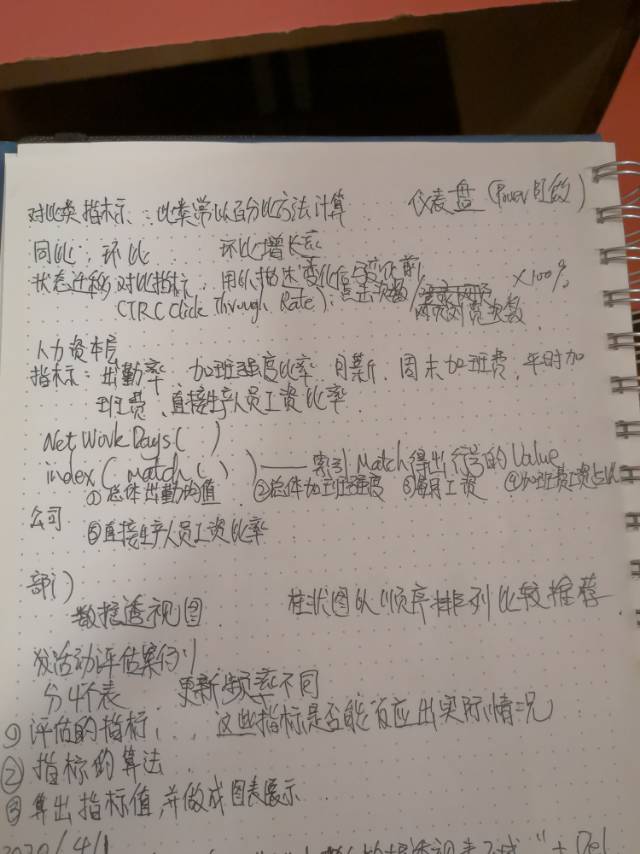 对比类指标:此类常以百分比方法计算 仪表盘(Power BI做)
同比,环比 环比增长率
状态迁移对比指标,用以描述变化后与变化前
CTR(Click Through Rate):点击次数/网页浏览次数 ×100%
人力资本层
指标:出勤率、加班强度比率、月薪、周末加班费,平时加
班费、直接生产人员工资比率
NetWorkDays( )
index( match( ) )——索引Match得出行号的Value
①总体出勤的值 ②总体加班强度 ③每月工资 ④加班费工资占比
公司 ⑤直接生产人员工资比率
部门
数据透视图 柱状图从顺序排列比较推荐
发活动评估案例
分4个表 更新频率不同
①评估的指标,..这些指标是否能反应出实际情况
②指标的算法
③算出指标值,并做成图表展示
2020/4/1 "+Del